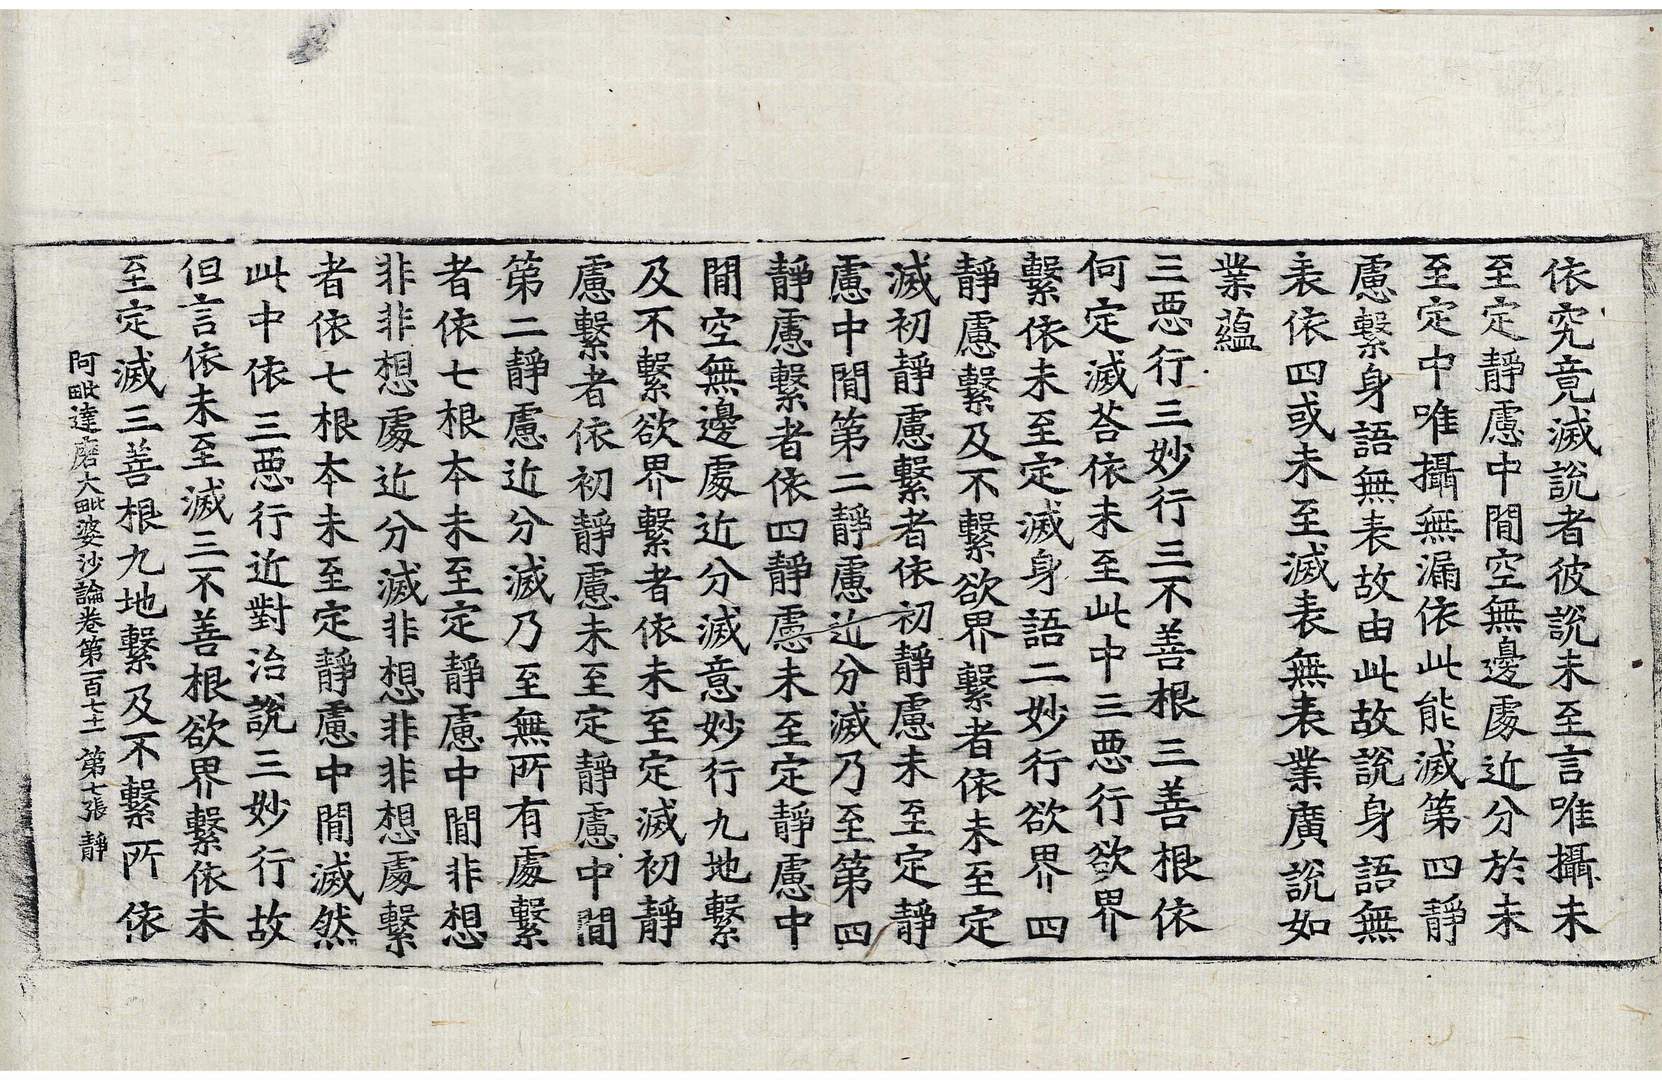 依究竟滅說者彼說未至言唯攝未
至定靜慮中閒空無邊處近分於未
至定中唯攝無漏依此能滅第四靜
慮繫身語無表故由此故說身語無
表依四或未至滅表無表業廣說如
業蘊
三惡行三妙行三不善根三善根依
何定滅荅依未至此中三惡行欲界
繫依未至定滅身語二妙行欲界四
靜慮繫及不繫欲界繫者依未至定
滅初靜慮繫者依初靜慮未至定靜
慮中閒第二靜慮近分滅乃至第四
靜慮繫者依四靜慮未至定靜慮中
閒空無邊處近分滅意妙行九地繫
及不繫欲界繫者依未至定滅初靜
慮繫者依初靜慮未至定靜慮中閒
第二靜慮近分滅乃至無所有處繫
者依七根本未至定靜慮中閒非想
非非想處近分滅非想非非想處繫
者依七根本未至定靜慮中閒滅然
此中依三惡行近對治說三妙行故
但言依未至滅三不善根欲界繫依未
至定滅三善根九地繫及不繫所依
阿毗達磨大毗婆沙論卷第一百七十一 第七張 靜